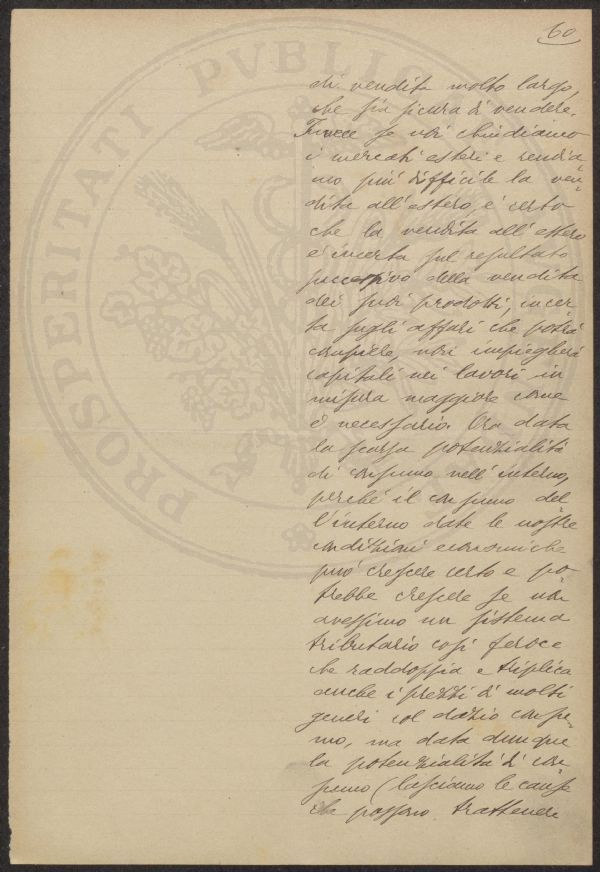 60
PROSPERITATI PVBLIC
di vendita molto largo,
che sia sicura di vendere.
Invece se noi chiudiamo
i mercati esteri e rendia-
mo più difficile la ven-
dita all'estero, è certo
che la vendita all'estero
è incerta sul resultato
successivo della vendita
dei suoi prodotti, incer-
ta sugli affari che potrà
compiere, non impiegherà
capitali nei lavori in
misura maggiore come
è necessario. Ora data
la scarsa potenzialità
di consumo nell'interno,
perché il consumo del-
l'interno date le nostre
condizioni economiche
può crescere certo e po-
trebbe crescere se non
avessimo un sistema
tributario così feroce
che raddoppia e triplica
anche i prezzi di molti
generi col dazio consu-
mo, ma data dunque
la potenzialità di con-
sumo (lasciamo le cause
che possono trattenere